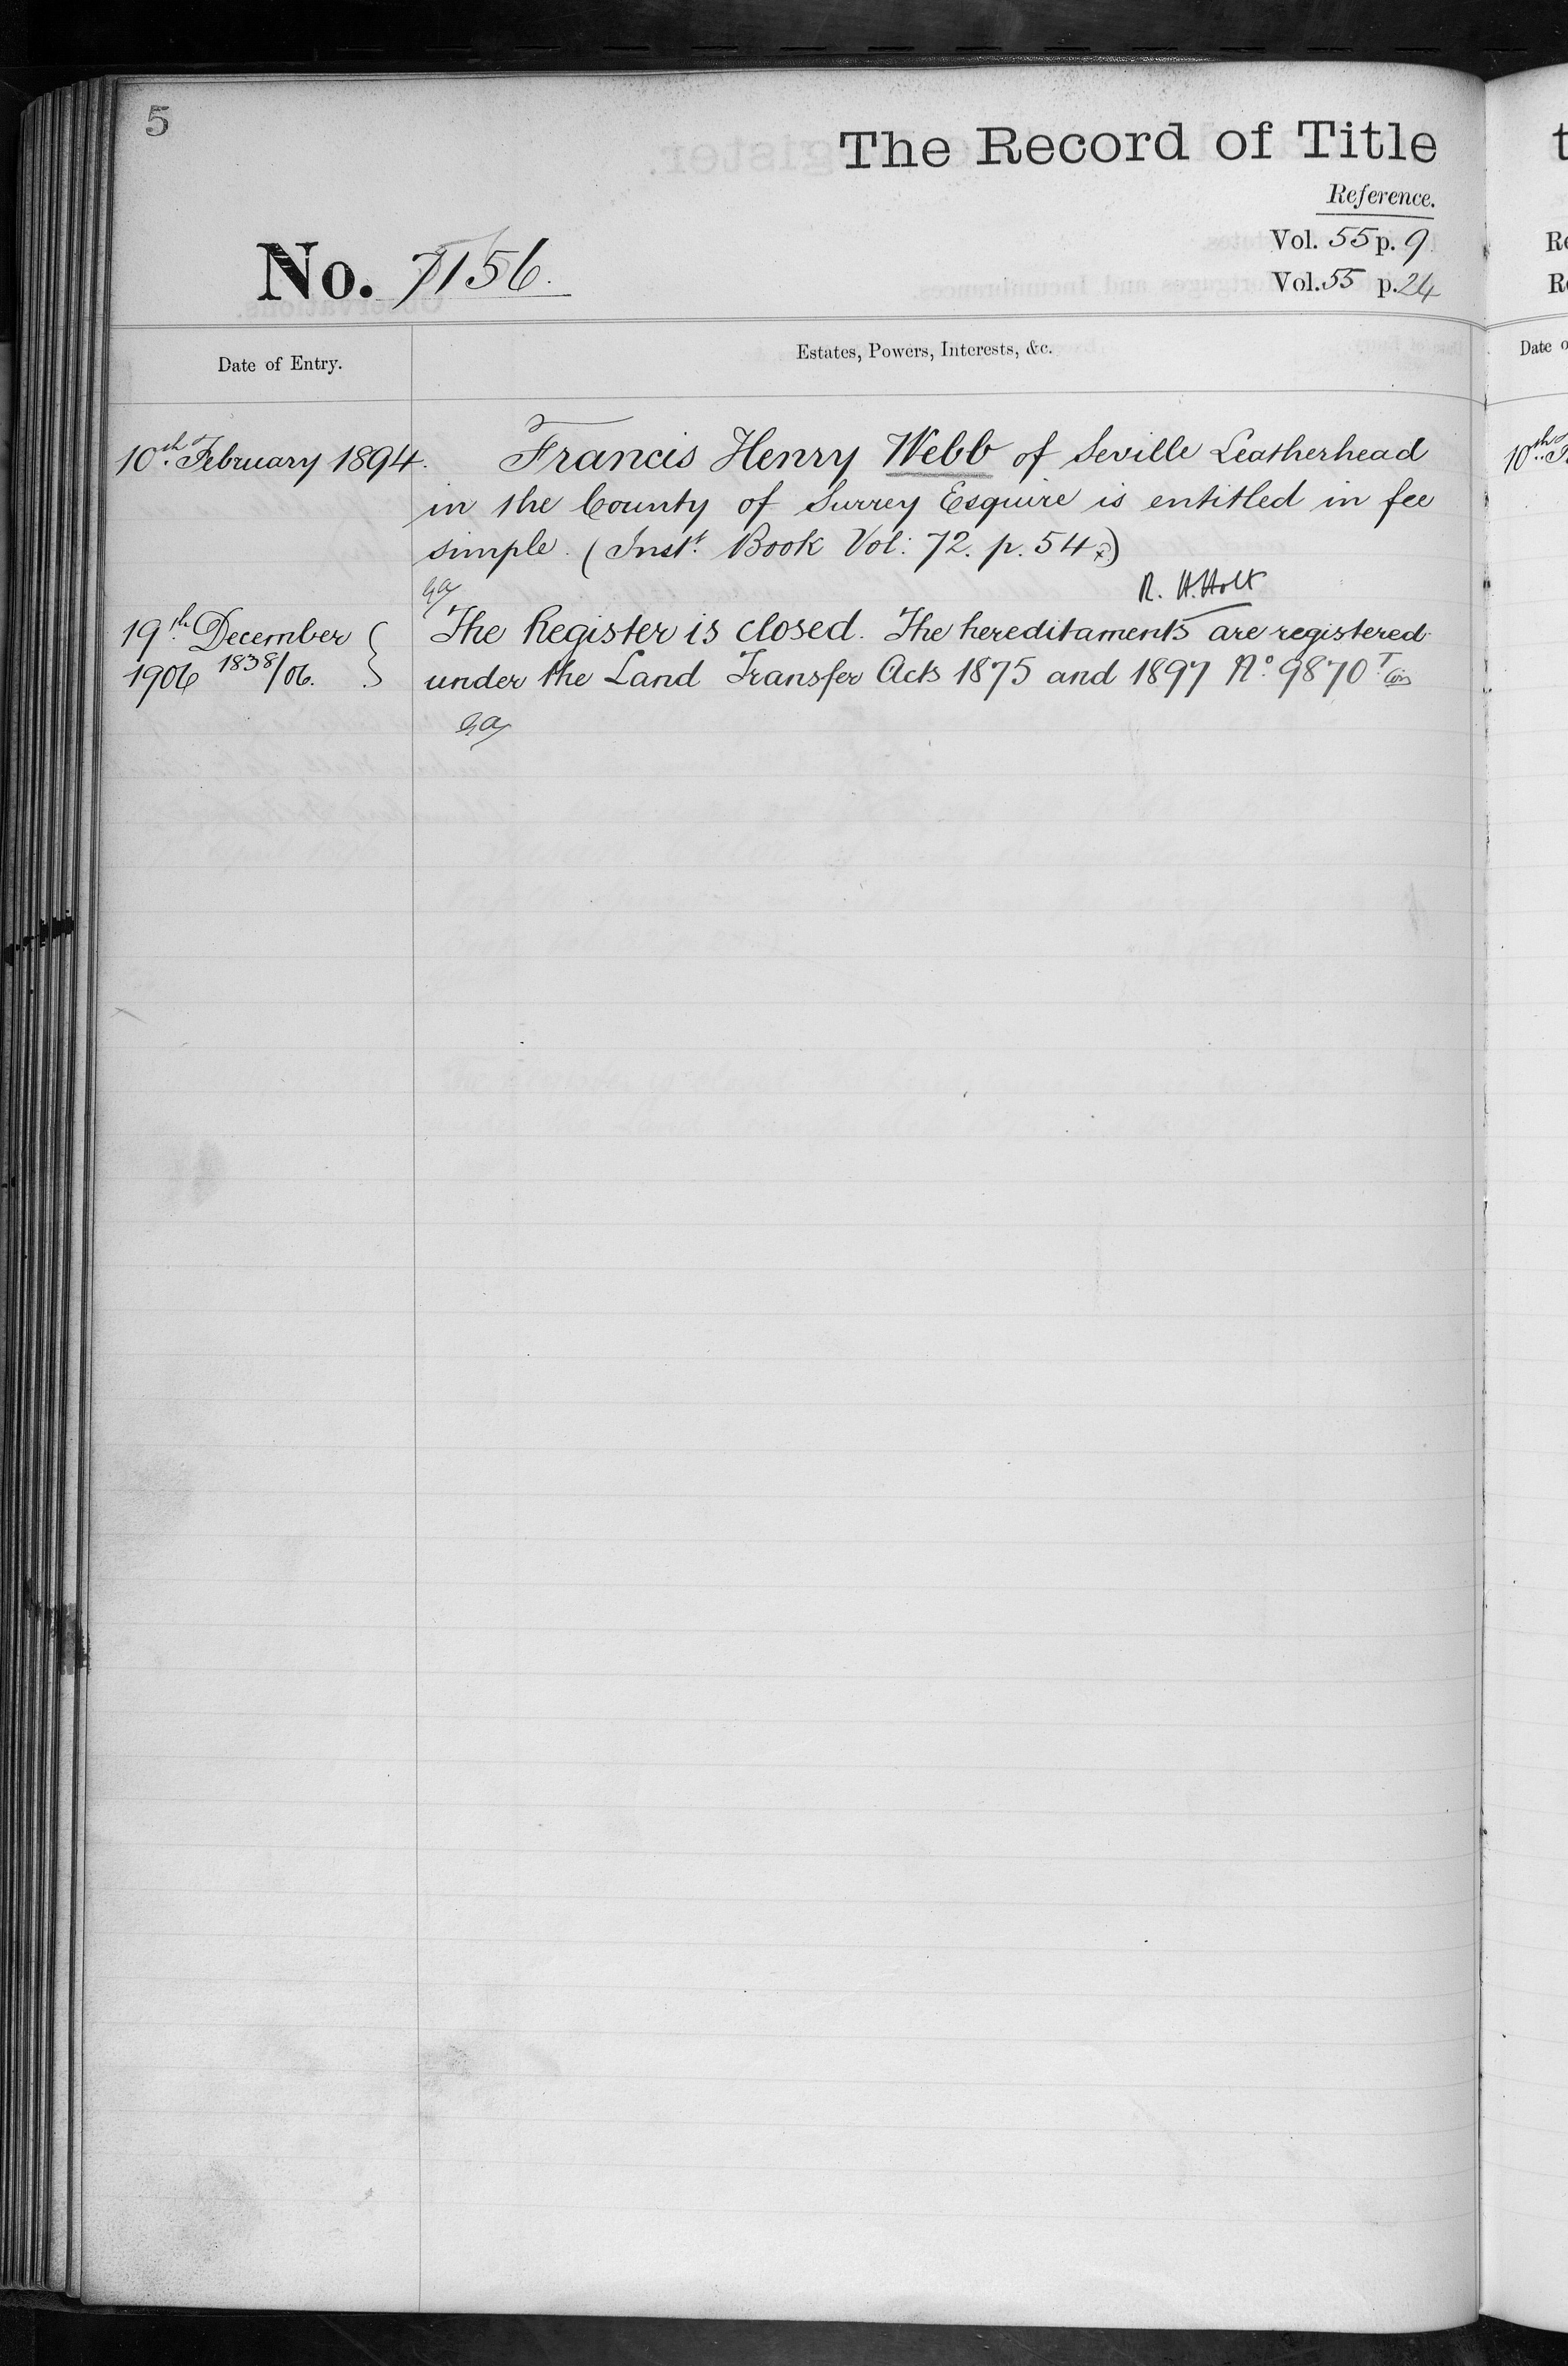 5
The Record of Title
Reference.
Vol. 55 p. 9
No. 7156.
Vol. 55 p. 24
Date of Entry.
Estates, Powers, Interests, &c.
10th February 1894.
Francis Henry Webb of Seville Leatherhead
in the County of Surrey Esquire is entitled in fee
simple. (Inst. Book Vol: 72. p. 54.)
R. H. Holt
19th December
1906 1838/06.
The Register is closed. The hereditaments are registered
under the Land Transfer Acts 1875 and 1897 No. 9870
Date o
10th